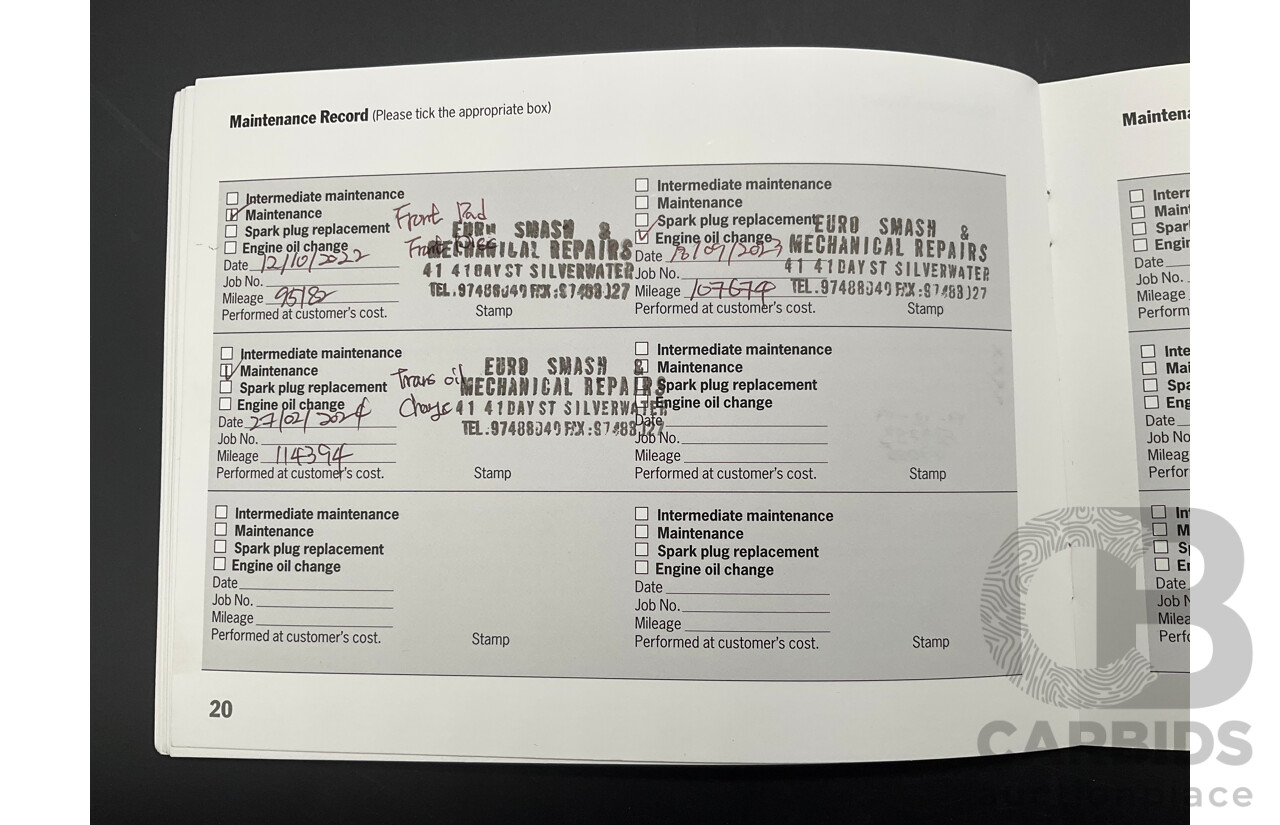 Maintenance Record (Please tick the appropriate box)
Intermediate maintenance
Maintenance
Spark plug replacement
Engine oil change
Date 12/10/2022
Job No.
Mileage 95182
Performed at customer's cost.
Front Pad
Front Disc
EURO SMASH &
MECHANICAL REPAIRS
41 41 DAY ST SILVERWATER
TEL.97488049 FAX:97488127
Stamp
Intermediate maintenance
Maintenance
Spark plug replacement
Engine oil change
Date 18/07/2023
Job No.
Mileage 107674
Performed at customer's cost.
EURO SMASH &
MECHANICAL REPAIRS
41 41 DAY ST SILVERWATER
TEL.97488049 FAX:97488127
Stamp
Intermediate maintenance
Maintenance
Spark plug replacement
Engine oil change
Date 27/02/2024
Job No.
Mileage 114394
Performed at customer's cost.
Trans oil
Change
EURO SMASH &
MECHANICAL REPAIRS
41 41 DAY ST SILVERWATER
TEL.97488049 FAX:97488127
Stamp
Intermediate maintenance
Maintenance
Spark plug replacement
Engine oil change
Date
Job No.
Mileage
Performed at customer's cost.
Stamp
Intermediate maintenance
Maintenance
Spark plug replacement
Engine oil change
Date
Job No.
Mileage
Performed at customer's cost.
Stamp
Intermediate maintenance
Maintenance
Spark plug replacement
Engine oil change
Date
Job No.
Mileage
Performed at customer's cost.
Stamp
20
Date
Job No.
Mileage
Date
Job No
CB
CARBIDS
auctionplace